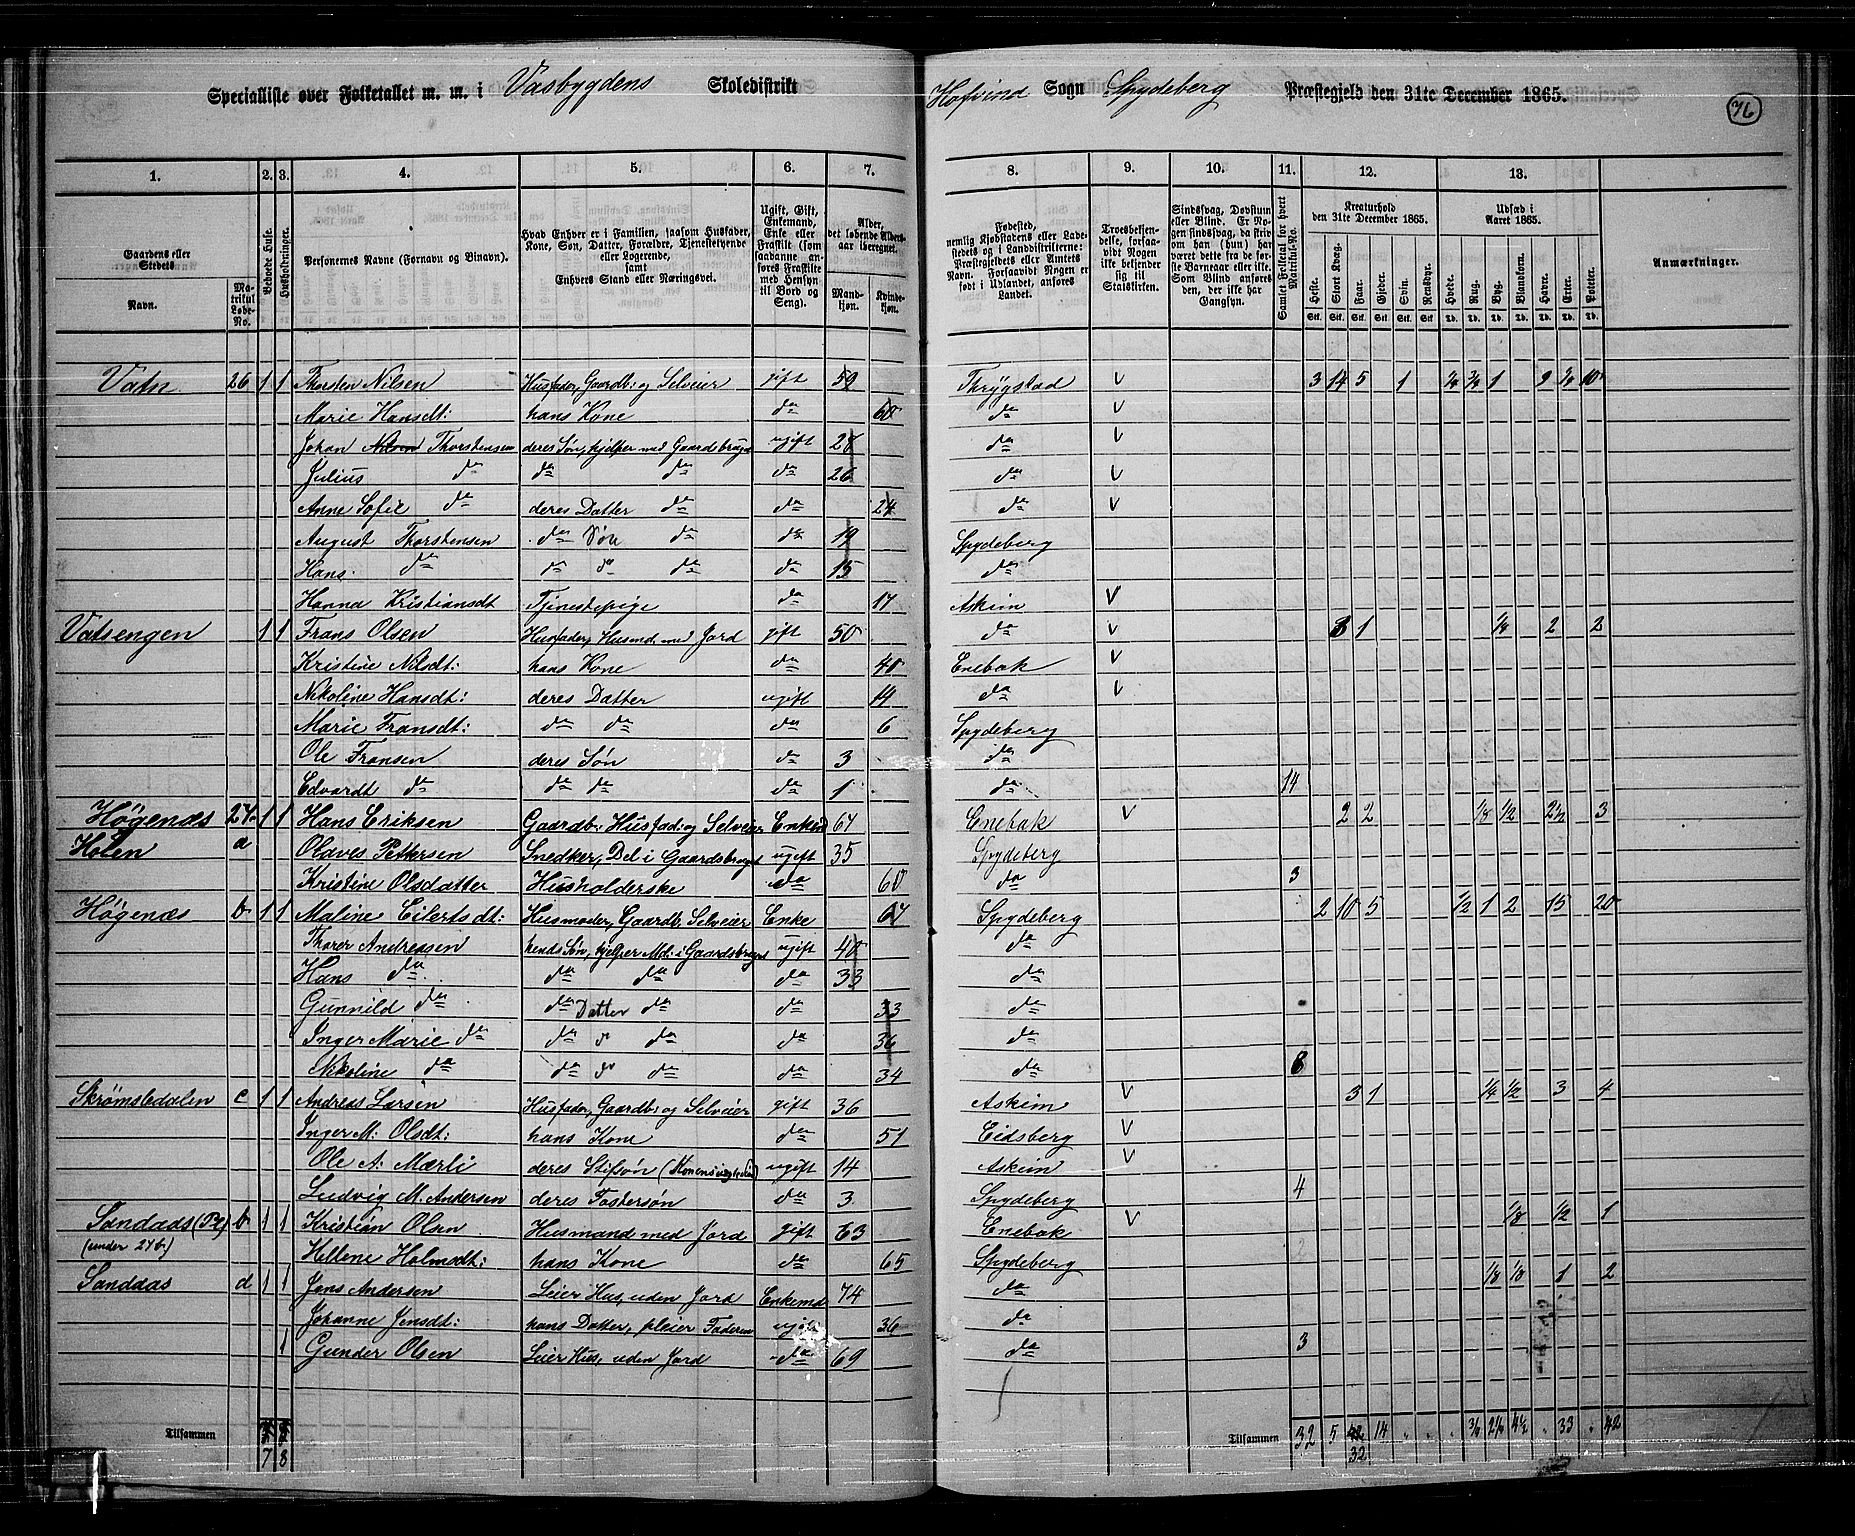 Specialliste over Folketallet m. m. i Vasbygdens Skoledistrikt Hofvind Sogn Spydeberg Præstegjeld den 31te December 1865. 76
1. 2. 3. 4. 5. 6. 7. 8. 9. 10. 11. 12. 13.
Gaardens eller Stedets Navn. Matrikul Løbe-No. Beboede Huse. Husholdninger. Personernes Navne (Fornavn og Binavn). Hvad Enhver er i Familien, saasom Husfader, Kone, Søn, Datter, Forældre, Tjenestetyende eller Logerende, samt Enhvers Stand eller Næringsvei. Ugift, Gift, Enkemand, Enke eller Fraskilt (som saadanne anføres Fraskilte med Hensyn til Bord og Seng). Alder, det løbende Aldersaar iberegnet. Mandkjøn. Kvindekjøn. Fødested, nemlig Kjøbstadens eller Ladestedets og i Landdistrikterne: Præstegjeldets eller Amtets Navn. Forsaavidt Nogen er født i Udlandet, anføres Landet. Troesbekjendelse, forsaavidt Nogen ikke bekjender sig til Statskirken. Sindssvag, Døvstum eller Blind. Er Nogen sindssvag, da skriv om han (hun) har været dette fra første Barneaar eller ikke. Som Blind anføres den, der ikke har Gangsyn. Samlet Folketal for hvert Matrikul-No. Kreaturhold den 31te December 1865. Udsæd i Aaret 1865. Anmærkninger.
Heste. Stort Kvæg. Faar. Gjeder. Svin. Rensdyr. Hvede. Rug. Byg. Blandkorn. Havre. Erter. Poteter.
Vatn 26 1 1 Thorsten Nilsen Husfader, Gaardb: og Selveier gift 59 Thrygstad v 3 14 5 1 1 10
Marie Hansdt: hans Kone do 60 do v
Johan Nilsen Thorstensen deres Søn, hjelper med Gaardsbruget ugift 28 do v
Julius do do do do 26 do v
Anne Sofie do deres Datter do do 24 do v
August Thorstensen do Søn do do 19 Spydeberg
Hans do do do do do 15 do
Hanna Kristiansdt Tjenestepige do 17 Askim v
Vatsengen 1 1 Frans Olsen Husfader, Husmd. med Jord gift 50 do v 3 1 1/8 2 2
Kristine Nilsdt: hans Kone do 40 Enebak v
Nikoline Hansdt: deres Datter ugift 14 do v
Marie Fransdt: do do do 6 Spydeberg
Ole Fransen deres Søn do 3 do
Edvardt do do do do 1 do 14
Høgenæs 27 1 1 Hans Eriksen Gaardb: Husfad: og Selveier Enkemd 67 Enebak v 2 2 1/8 1/2 2 1/2 3
Holen a Olaves Pettersen Snedker, Del i Gaardsbruget ugift 35 Spydeberg
Kristine Olsdatter Husholderske do 60 do 3
Høgenæs b 1 1 Maline Eilertsdt: Husmoder, Gaardb. Selveier Enke 67 Spydeberg 2 10 5 1/2 1 2 15 20
Thorer Andreasen hends Søn, hjelper Md: i Gaardsbruget ugift 40 do
Hans do do do do 33 do
Gunnild do do Datter do do 33 do
Inger Marie do do do do do 36 do
Nikoline do do do do do 34 do 6
Skrømsledalen c 1 1 Andreas Larsen Husfader, Gaardb: og Selveier gift 36 Askim v 3 1 1/4 1/2 3 4
Inger M: Olsdt: hans Kone do 51 Eidsberg v
Ole A. Mærli deres Stifsøn ugift 14 Askim v
Ludvig M. Andersen deres Fostersøn do 3 Spydeberg 4
Sandaas (Pl) b 1 1 Kristian Olsen Husmand med Jord gift 63 Enebak v 1/8 1/2 1
(under 27 b.) Hellene Holmsdt: hans Kone do 65 Spydeberg 2
Sandaas d 1 1 Jens Andersen Leier Hus, uden Jord Enkemd 74 do 1/8 1/8 1 2
Johanne Jensdt: hans Datter, pleier Faderen ugift 36 do
1 Gunder Olsen Leier Hus, uden Jord do 69 do 3
Tilsammen 7 8 Tilsammen 32 5 32 14 33 42